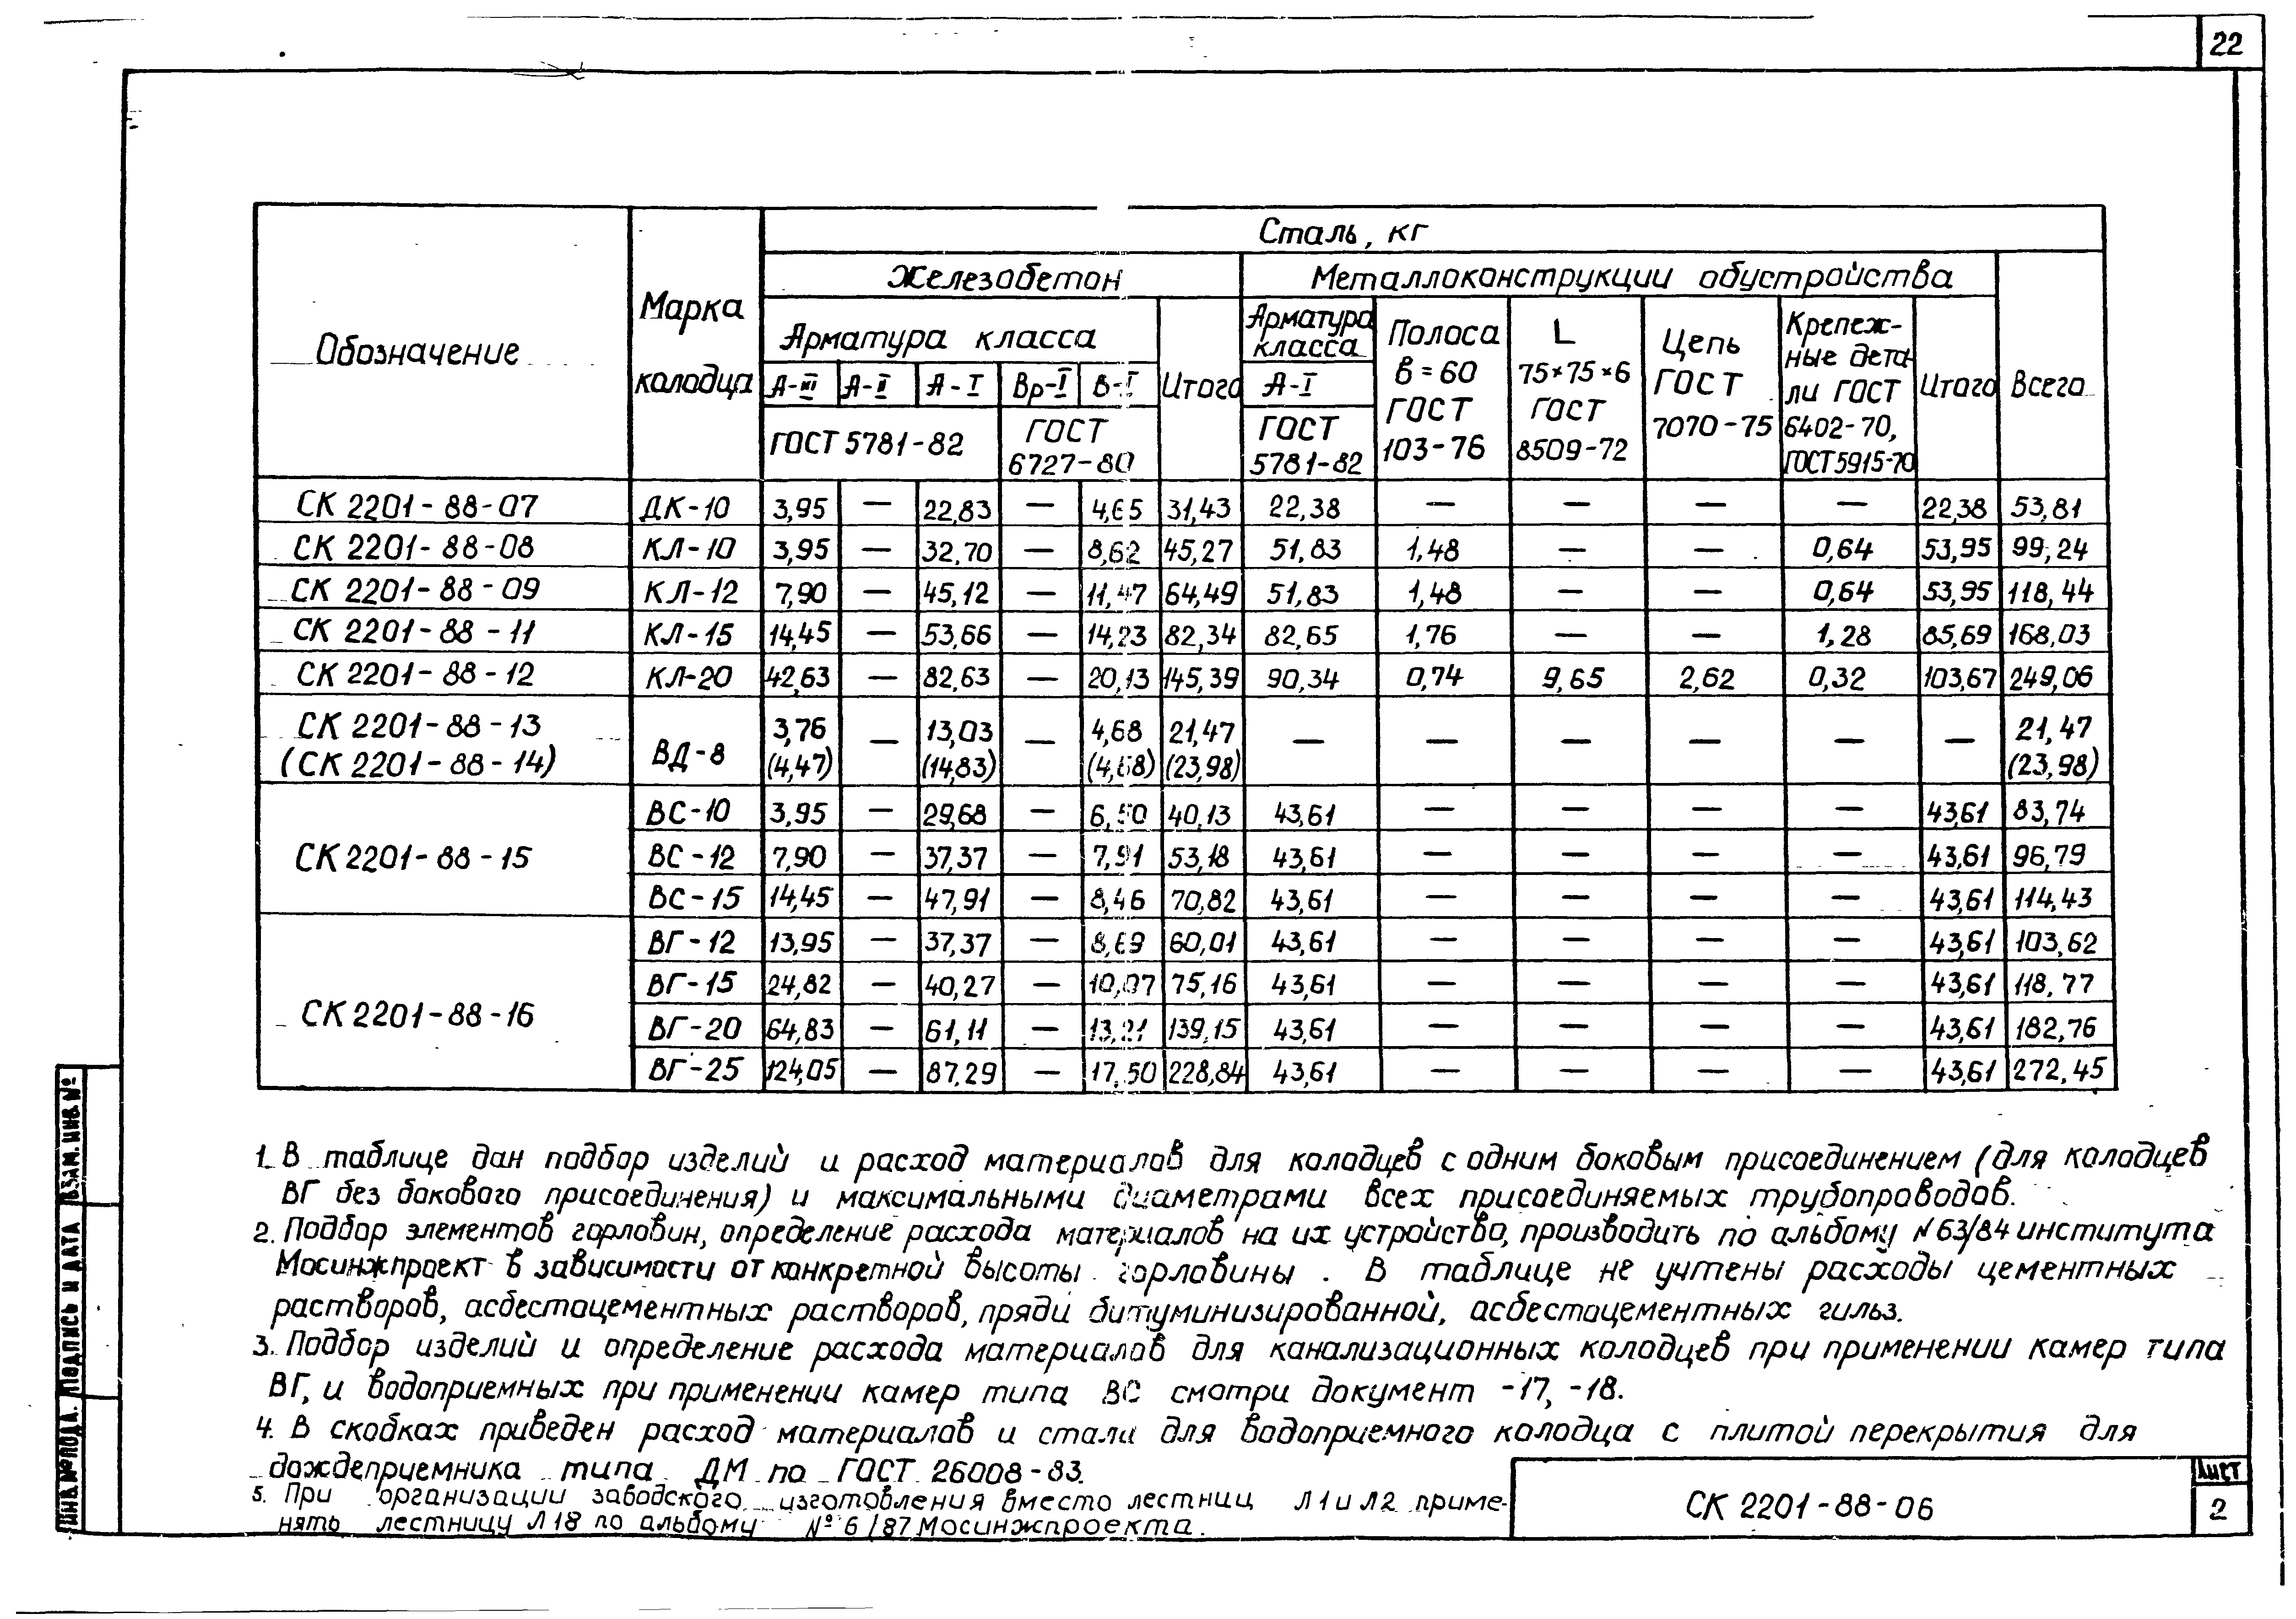 22
Сталь, кг
Железобетон
Металлоконструкции обустройства
Обозначение
Марка
колодца
Арматура класса
А-III А-II А-I Вр-I В-I
ГОСТ 5781-82
ГОСТ
6727-80
Итого
Арматура
класса
А-I
ГОСТ
5781-82
Полоса
в=60
ГОСТ
103-76
L
75×75×6
ГОСТ
8509-72
Цепь
ГОСТ
7070-75
Крепеж-
ные дета-
ли ГОСТ
6402-70,
ГОСТ 5915-70
Итого
Всего
СК 2201-88-07 ДК-10 3,95 — 22,83 — 4,65 31,43 22,38 — — — — 22,38 53,81
СК 2201-88-08 КЛ-10 3,95 — 32,70 — 8,62 45,27 51,83 1,48 — — 0,64 53,95 99,24
СК 2201-88-09 КЛ-12 7,90 — 45,12 — 11,47 64,49 51,83 1,48 — — 0,64 53,95 118,44
СК 2201-88-11 КЛ-15 14,45 — 53,66 — 14,23 82,34 82,65 1,76 — — 1,28 85,69 168,03
СК 2201-88-12 КЛ-20 42,63 — 82,63 — 20,13 145,39 90,34 0,74 9,65 2,62 0,32 103,67 249,06
СК 2201-88-13 ВД-8 3,76 — 13,03 — 4,68 21,47 — — — — — — 21,47
(СК 2201-88-14) (4,47) (14,83) (4,68) (23,98) (23,98)
СК 2201-88-15
ВС-10 3,95 — 29,68 — 6,50 40,13 43,61 — — — — 43,61 83,74
ВС-12 7,90 — 37,37 — 7,91 53,18 43,61 — — — — 43,61 96,79
ВС-15 14,45 — 47,91 — 8,46 70,82 43,61 — — — — 43,61 114,43
СК 2201-88-16
ВГ-12 13,95 — 37,37 — 8,69 60,01 43,61 — — — — 43,61 103,62
ВГ-15 24,82 — 40,27 — 10,07 75,16 43,61 — — — — 43,61 118,77
ВГ-20 64,83 — 61,11 — 13,21 139,15 43,61 — — — — 43,61 182,76
ВГ-25 124,05 — 87,29 — 17,50 228,84 43,61 — — — — 43,61 272,45
1. В таблице дан подбор изделий и расход материалов для колодцев с одним боковым присоединением (для колодцев
ВГ без бокового присоединения) и максимальными диаметрами всех присоединяемых трубопроводов.
2. Подбор элементов горловин, определение расхода материалов на их устройство, производить по альбому N 63/84 института
Мосинжпроект в зависимости от конкретной высоты горловины. В таблице не учтены расходы цементных
растворов, асбестоцементных растворов, пряди битуминизированной, асбестоцементных гильз.
3. Подбор изделий и определение расхода материалов для канализационных колодцев при применении камер типа
ВГ, и водоприемных при применении камер типа ВС смотри документ -17, -18.
4. В скобках приведен расход материалов и стали для водоприемного колодца с плитой перекрытия для
дождеприемника типа ДМ по ГОСТ 26008-83.
5. При организации заводского изготовления вместо лестниц Л1 и Л2 приме-
нять лестницу Л18 по альбому № 6/87 Мосинжпроекта.
СК 2201-88-06
Лист
2
ИНВ. № ПОДЛ. ПОДПИСЬ И ДАТА ВЗАМ. ИНВ. №